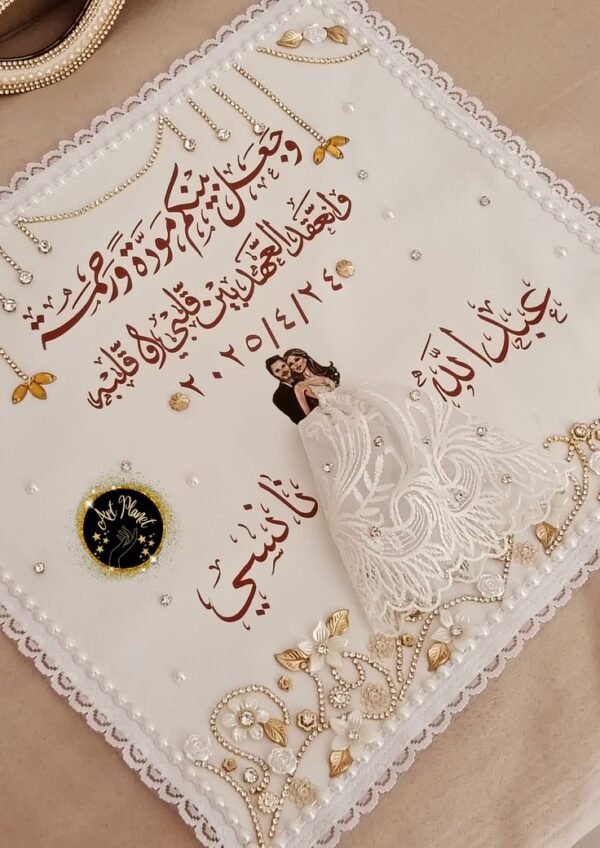 وَجَعَلَ بَيْنَكُم مَّوَدَّةً وَرَحْمَةً
وانعَقَد العَهد بين قَلبي و قَلبه
٢٠٢٥/٤/٢٤
عبد الله
نانسي
Art Planet